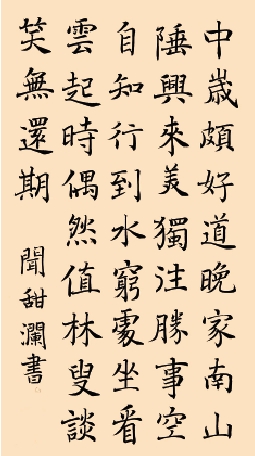 中歲頗好道晚家南山
陲興來美獨注勝事空
自知行到水窮處坐看
雲起時偶然值林叟談
笑無還期 聞甜瀾書